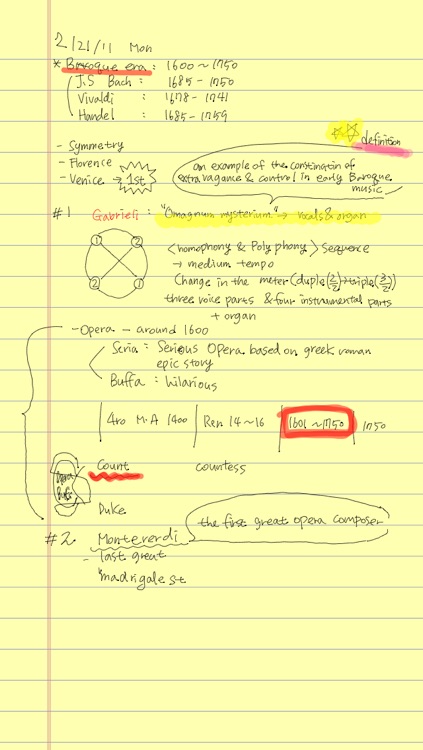 2/21/11 Mon
* Baroque era : 1600 ~ 1750
J.S Bach : 1685 - 1750
Vivaldi : 1678 - 1741
Handel : 1685 - 1759
definition
- Symmetry
- Florence
- Venice → 1st
an example of the constingtin of
extravagance & control in early Baroque
music
#1 Gabrieli : "Omagnum mysterium" → vocals & organ
1 2
2 1
<homophony & Polyphony> Sequence
→ medium tempo
Change in the meter (duple(2/2) → triple(3/2)
three voice parts & four instrumental parts
+ organ
- Opera - around 1600
Seria : Serious Opera based on greek, roman
epic story
Buffa : hilarious
| 450 M.A 1400 | Ren 14~16 | 1601 ~ 1750 | 1750
Count countess
Opera
Buffa
Duke
the first great opera composer
#2 Monteverdi
- last great
madrigalest